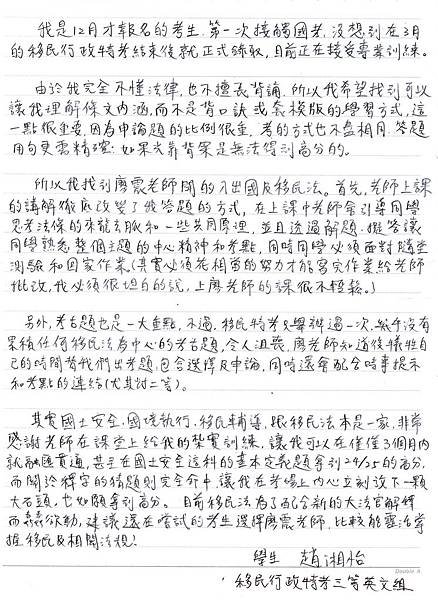 我是12月才報名的考生,第一次接觸國考,沒想到在3月
的移民行政特考結束後就正式錄取,目前正在接受專業訓練。
由於我完全不懂法律,也不擅長背誦,所以我希望找到可以
讓我理解條文內涵,而不是背口訣或套模版的學習方式,這
一點很重要,因為申論題的比例很重,考的方式也不盡相同,答題
用句更需精確,如果只靠背案是無法得到高分的。
所以我找到廖震老師開的入出國及移民法。首先,老師上課
的講解徹底改變了我答題的方式,在上課中老師會引導同學
思考法條的來龍去脈和一些共同原理,並且透過解題、擬答讓
同學熟悉整個主題的中心精神和考點,同時同學必須面對隨堂
測驗和回家作業(其實必須花相當的努力才能寫完作業給老師
批改,我必須很坦白的說,上廖老師的課很不輕鬆。)
另外,考古題也是一大重點,不過,移民特考只舉辦過一次,幾乎沒有
累積任何移民法為中心的考古題,令人沮喪,廖老師知道後犧牲自
己的時間替我們出考題,包含選擇及申論,同時還會配合時事提示
和考點的連結(尤其對二等)。
其實國土安全、國境執行、移民輔導,跟移民法本是一家,非常
感謝老師在課堂上給我的紮實訓練,讓我可以在僅僅3個月內
就融匯貫通,甚至在國土安全這科的基本定義題拿到24/25的高分,
而關於釋字的猜題則完全命中,讓我在考場上內心立刻放下一顆
大石頭,也如願拿到高分。目前移民法為了配合新的大法官解釋
而蠢蠢欲動,建議還在嘗試的考生選擇廖震老師,比較能靈活掌
握移民及相關法規!
學生 趙湘怡
移民行政特考三等英文組
Double A